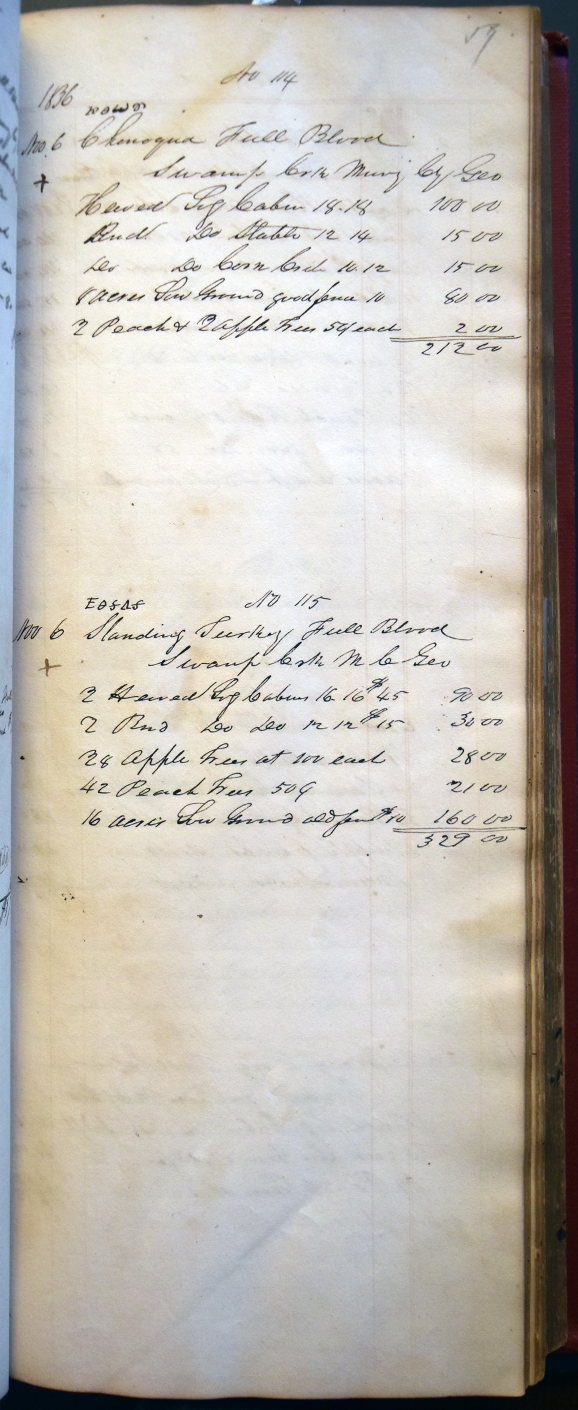 59
No 114
1836
Nov. 6 Chenoqua Full Blood
+ Swamp Crk Murry Cy Geo
Hewed Log Cabin 18.18 100 00
Rnd Do Stable 12 14 15 00
Do Do Corn Crib 10.12 15 00
8 acres Low Ground good fence 10 80 00
2 Peach & 2 apple trees 50¢ each 2 00
212 00
No 115
Nov 6 Standing Turkey Full Blood
+ Swamp Crk M C Geo
2 Hewed Log Cabins 16 16 $45 90 00
2 Rnd Do Do 12 12 $15 30 00
28 Apple trees at 100 each 28 00
42 Peach trees 50¢ 21 00
16 acres Low Ground old fence $10 160 00
329 00